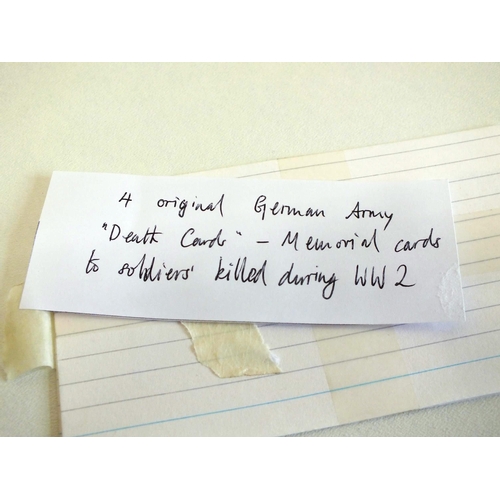 4 original German Army
"Death Cards" – Memorial cards
to soldiers' killed during WW2